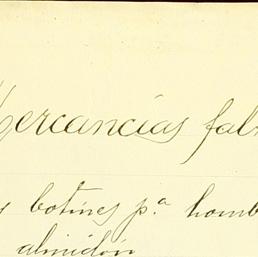 Mercancías fab
s botines p.ª homb
almidón